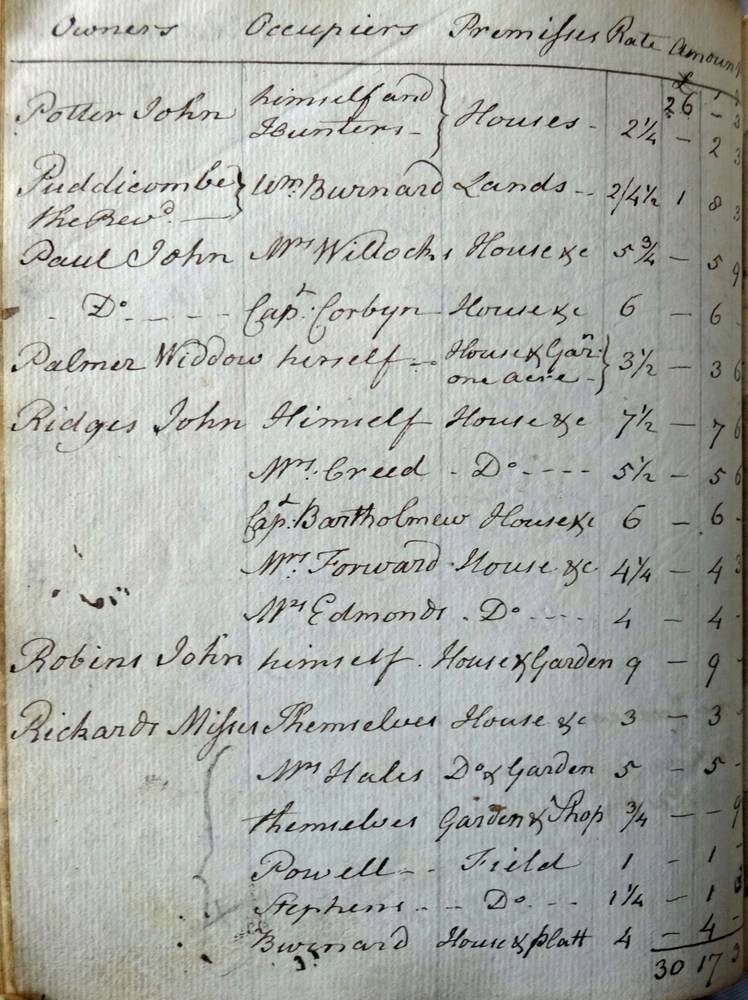 Owners Occupiers Premisses Rate Amount
£
26 - 3
Potter John himself and Hunters - } Houses - 2¼ - 2 3
Puddicombe the Revd. } Wm. Burnard Lands - 2/4½ 1 8 3
Paul John Mrs Willocks House &c 5¾ - 5 9
Do ---- Capt. Corbyn House &c 6 - 6 -
Palmer Widdow herself -- House & Garn: one acre - } 3½ - 3 6
Ridges John Himself House &c 7½ - 7 6
Mrs. Creed - Do ---- 5½ - 5 6
Capt. Bartholmew House &c 6 - 6 -
Mrs. Forward House &c 4¼ - 4 3
Mrs Edmonds - Do ---- 4 - 4 -
Robins John himself. House & Garden 9 - 9 -
Rickards Misses Themselves House &c 3 - 3 -
Mrs Hales Do & Garden 5 - 5 -
themselves Garden & Shop ¾ - - 9
Powell -- Field 1 - 1 -
Stephens -- Do -- 1¼ - 1 3
Burnard House & platt 4 - 4 -
30 17 3